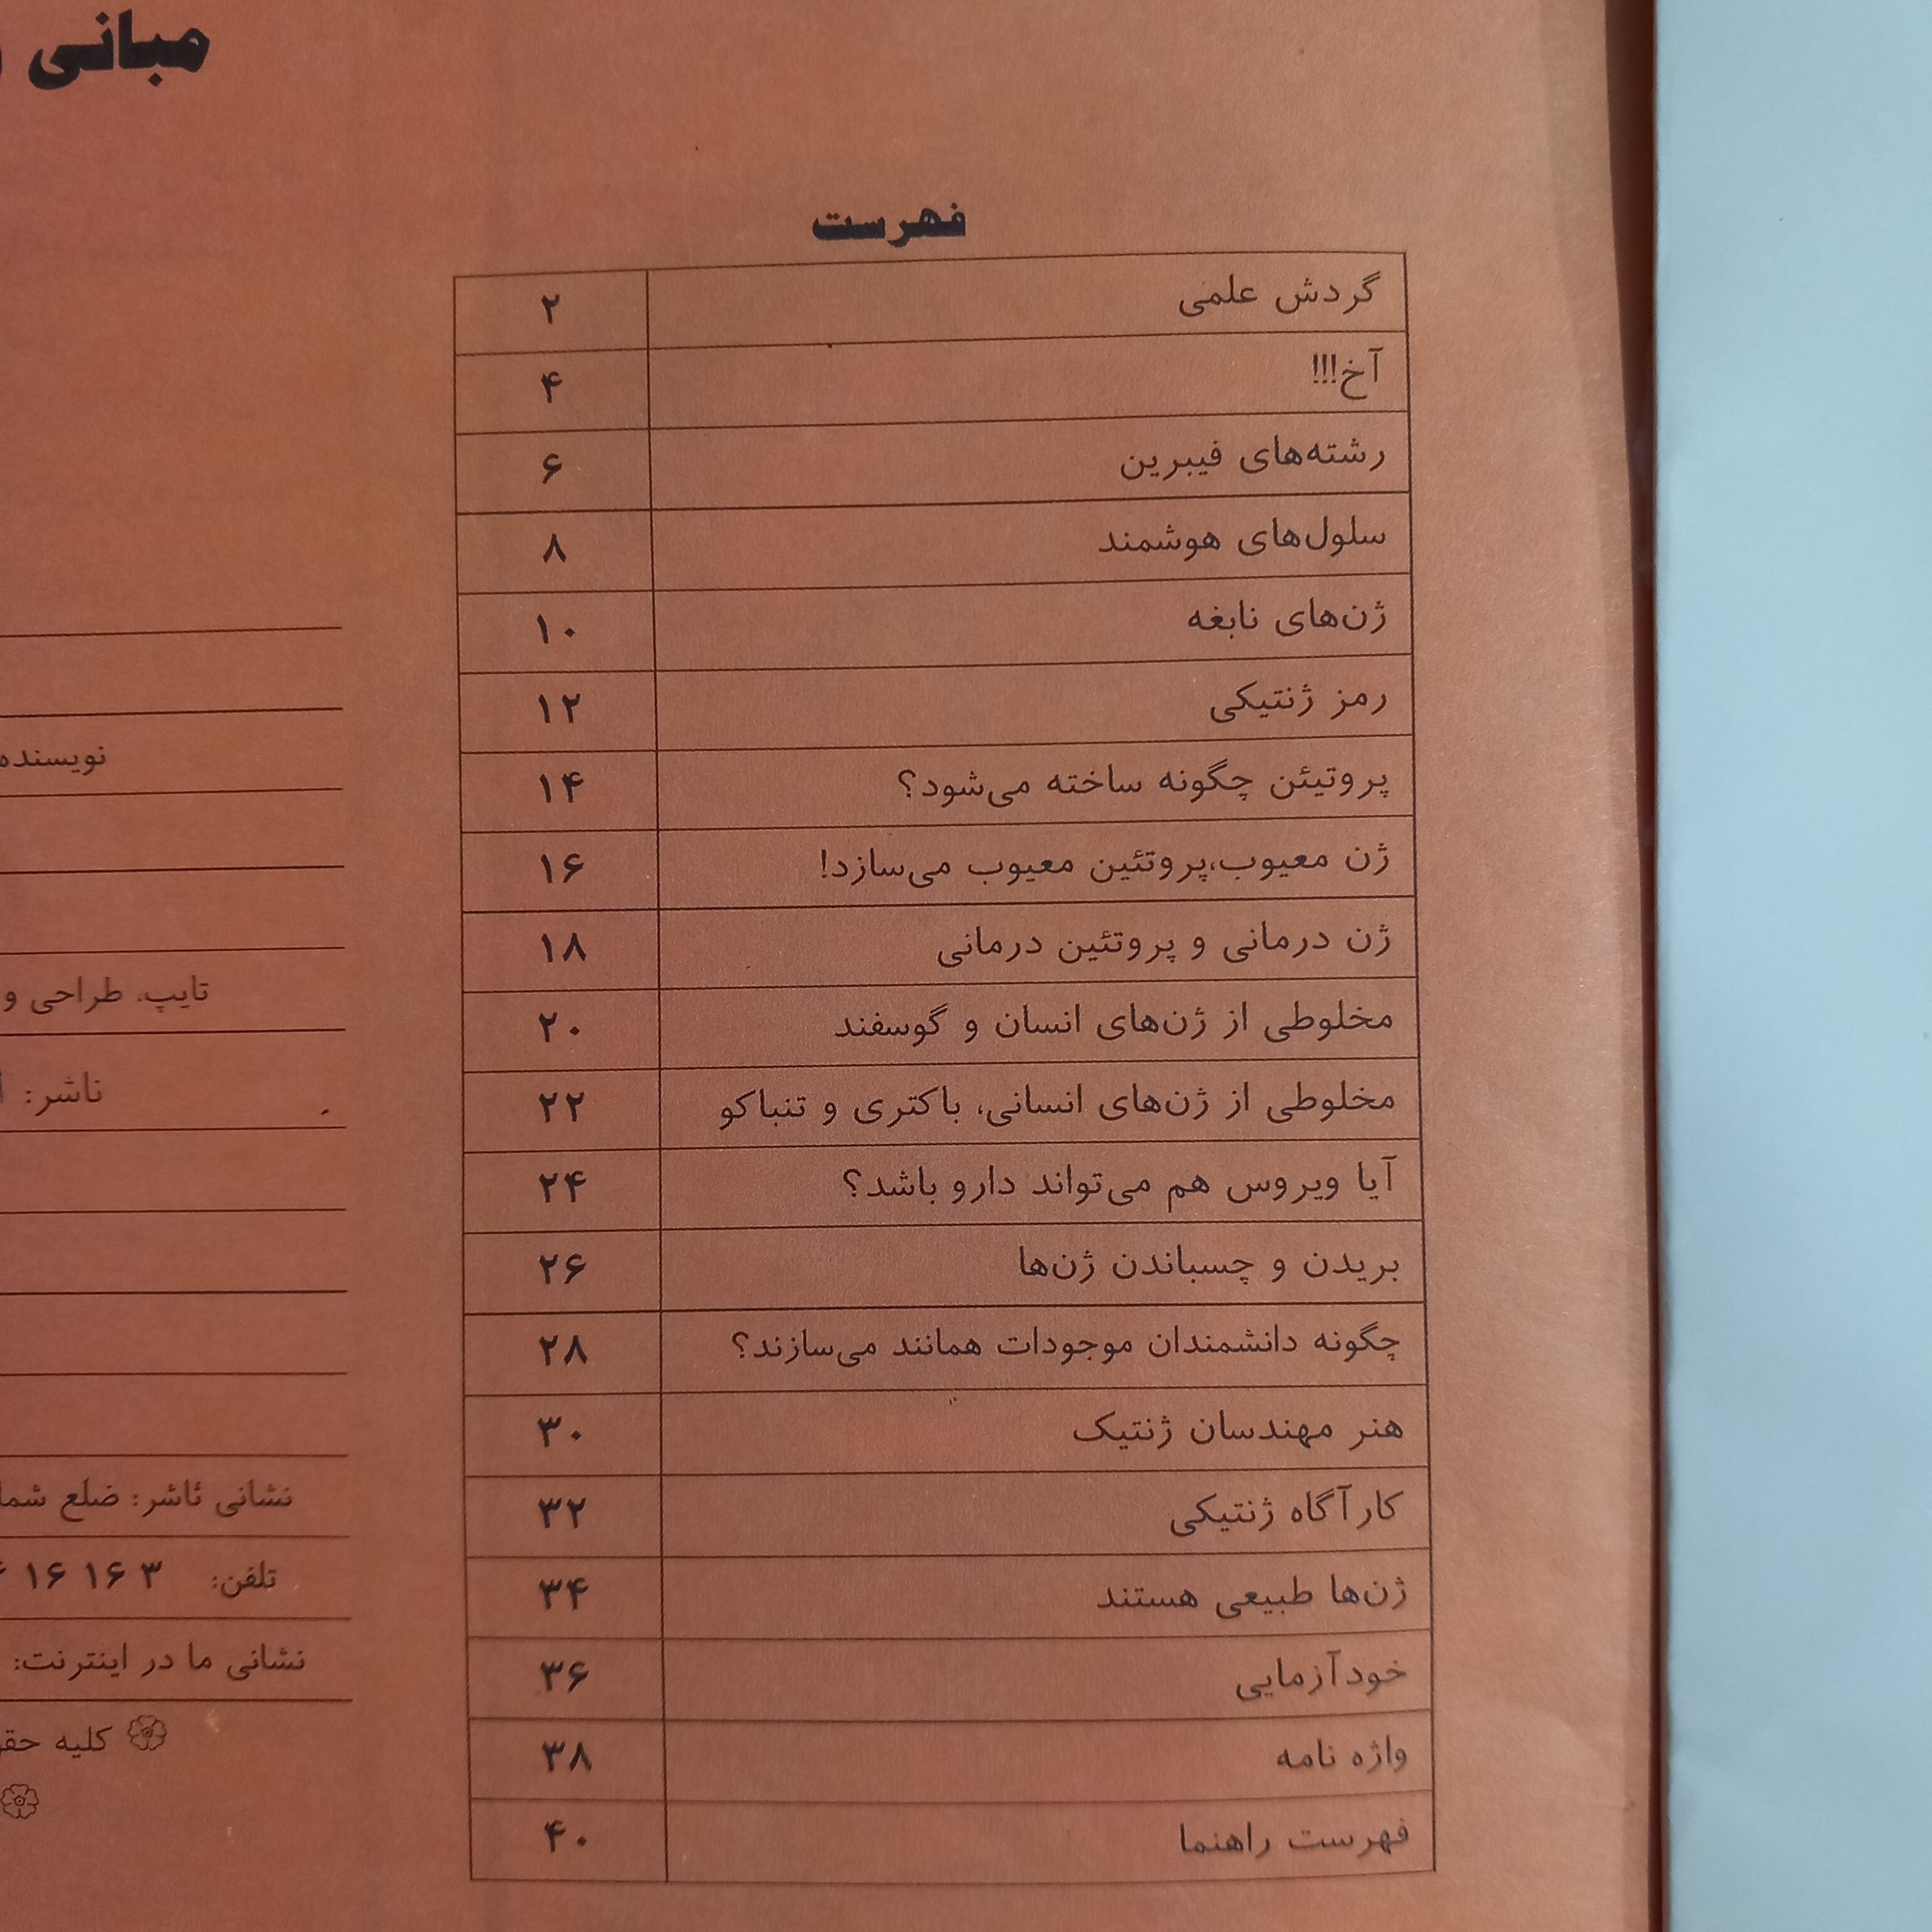 مبانی
فهرست
گردش علمی ۲
آخ!!! ۴
رشته‌های فیبرین ۶
سلول‌های هوشمند ۸
ژن‌های نابغه ۱۰
رمز ژنتیکی ۱۲
پروتیئن چگونه ساخته می‌شود؟ ۱۴
ژن معیوب،پروتئین معیوب می‌سازد! ۱۶
ژن درمانی و پروتئین درمانی ۱۸
مخلوطی از ژن‌های انسان و گوسفند ۲۰
مخلوطی از ژن‌های انسانی، باکتری و تنباکو ۲۲
آیا ویروس هم می‌تواند دارو باشد؟ ۲۴
بریدن و چسباندن ژن‌ها ۲۶
چگونه دانشمندان موجودات همانند می‌سازند؟ ۲۸
هنر مهندسان ژنتیک ۳۰
کارآگاه ژنتیکی ۳۲
ژن‌ها طبیعی هستند ۳۴
خودآزمایی ۳۶
واژه نامه ۳۸
فهرست راهنما ۴۰
نویسنده
تایپ، طراحی و
ناشر:
نشانی ناشر: ضلع
تلفن: ۳ ۱۶ ۱۶
نشانی ما در اینترنت:
کلیه